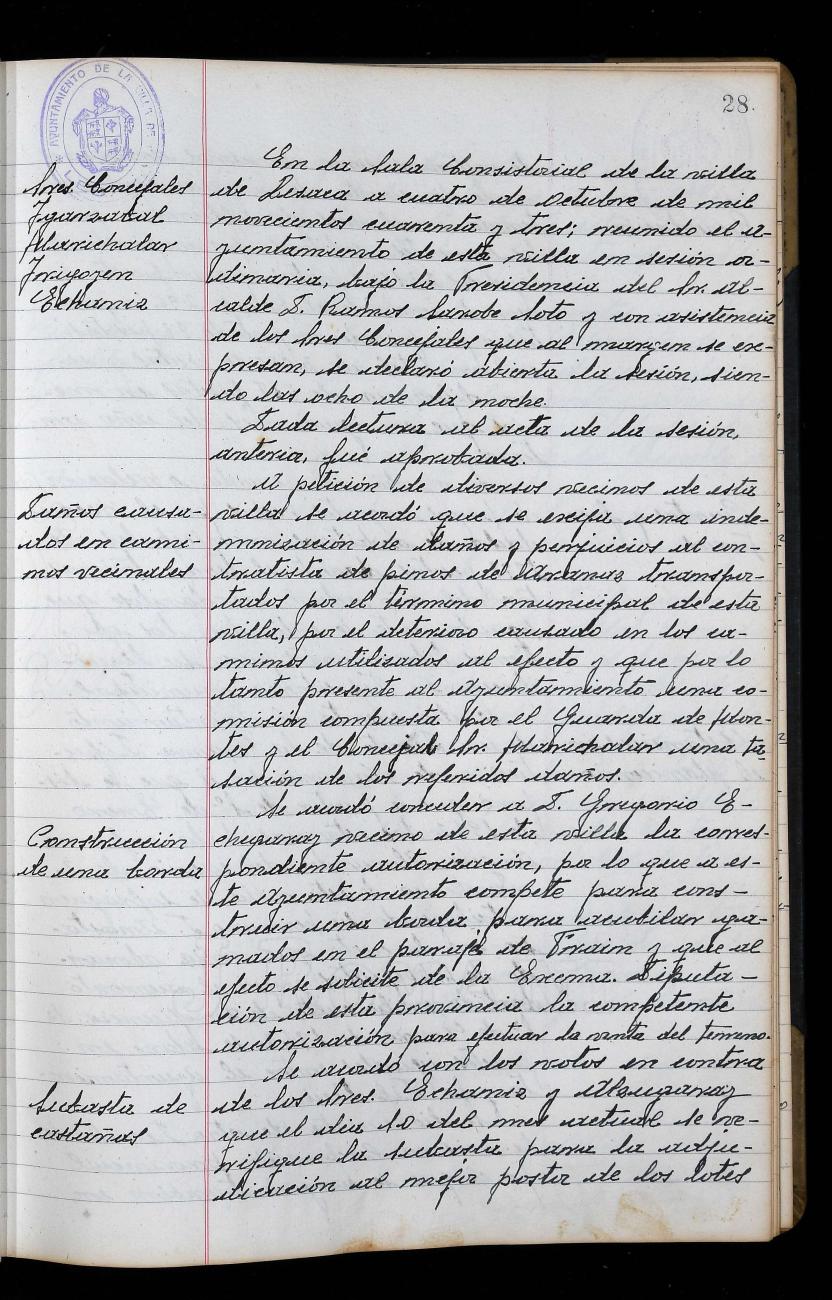 28.
AYUNTAMIENTO DE LA VILLA DE
En la Sala Consistorial de la villa
de Lesaca a cuatro de Octubre de mil
novecientos cuarenta y tres; reunido el A-
yuntamiento de esta villa en sesión or-
dinaria, bajo la Presidencia del Sr. Al-
calde D. Ramos Sarobe Soto y con asistencia
de los Sres Concejales que al margen se ex-
presan, se declaró abierta la sesión, sien-
do las ocho de la noche.
Sres. Concejales
Ygarzabal
Marichalar
Yrigoyen
Echaniz
Dada lectura al acta de la sesión,
anterior, fué aprobada.
Daños causa-
dos en cami-
nos vecinales
A petición de diversos vecinos de esta
villa se acordó que se exija una inde-
mnización de daños y perjuicios al con-
tratista de pinos de Aranaz transpor-
tados por el término municipal de esta
villa, por el deterioro causado en los ca-
minos utilizados al efecto y que por lo
tanto presente al Ayuntamiento una co-
misión compuesta por el Guarda de Mon-
tes y el Concejal Sr. Marichalar una ta-
sación de los referidos daños.
Construcción
de una borda
Se acordó conceder a D. Gregorio E-
chegaray vecino de esta villa la corres-
pondiente autorización, por lo que a es-
te Ayuntamiento compete para cons-
truir una borda para acubilar ga-
nados en el paraje de Frain y que al
efecto se solicite de la Excma. Diputa-
ción de esta provincia la competente
autorización para efectuar la venta del terreno.
Subasta de
castañas
Se acordó con los votos en contra
de los Sres. Echaniz y Alzugaray
que el dia 10 del mes actual se ve-
rifique la subasta para la adju-
dicación al mejor postor de los lotes